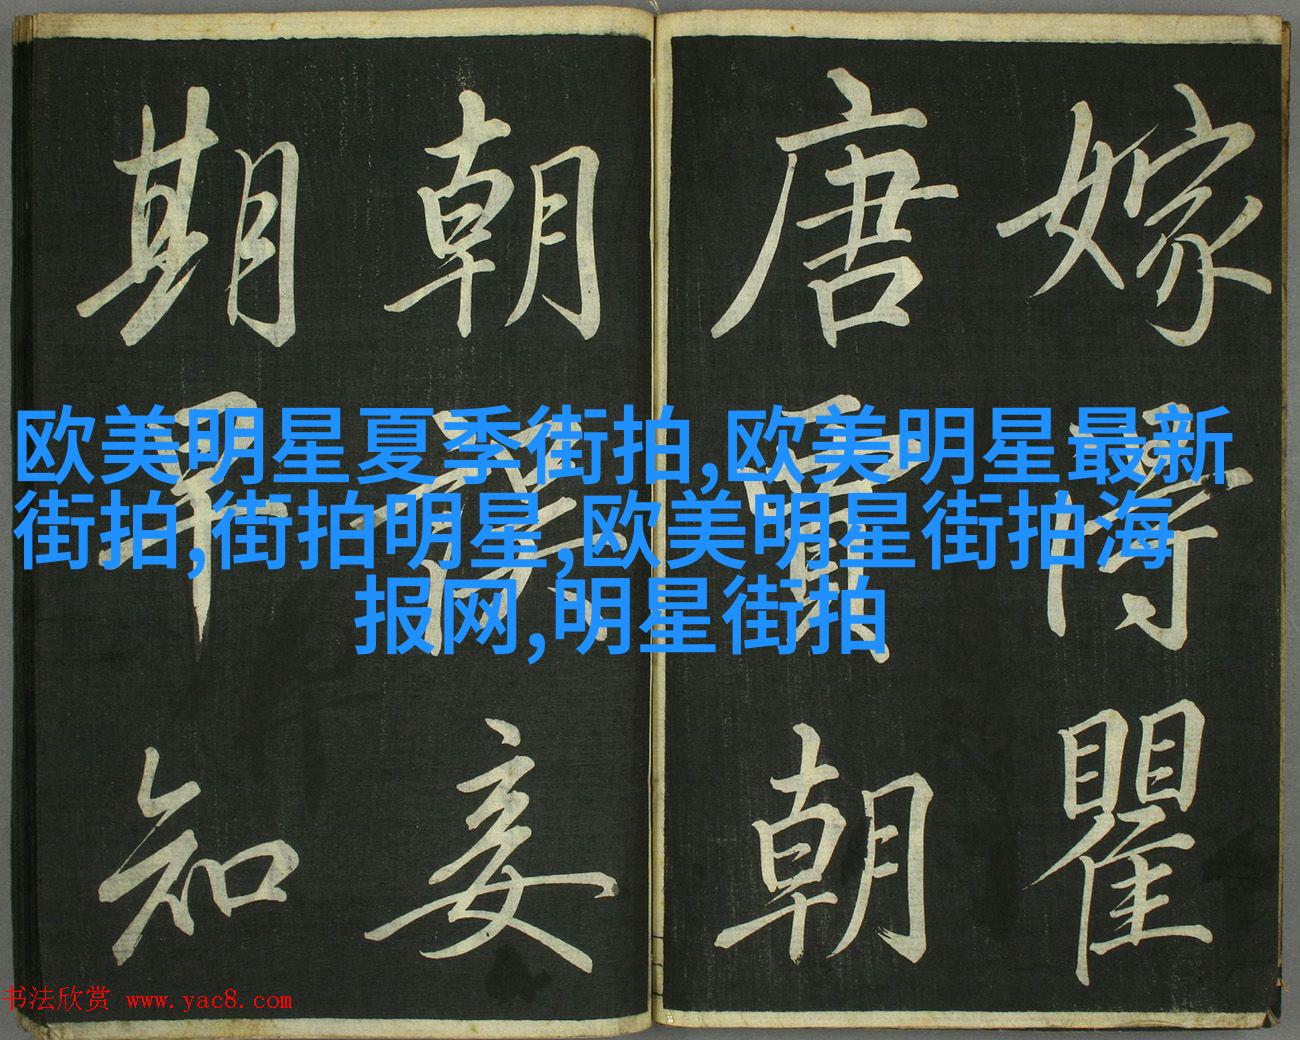 嫁得瞿
唐賈朝
朝誤妾
期早知
欧美明星夏季街拍,欧美明星最新
街拍,街拍明星,欧美明星街拍海
报网,明星街拍
书法欣赏 www.yac8.com